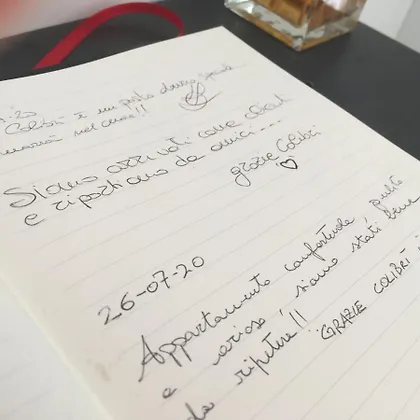 :20
Colibrì è un posto davvero speciale
rimarrà nel cuore!!
Siamo arrivati come clienti
e ripartiamo da amici...
grazie Colibrì
26-07-20
Appartamento confortevole pulito
e arioso, siamo stati bene
da ripetere!! GRAZIE COLIBRÌ